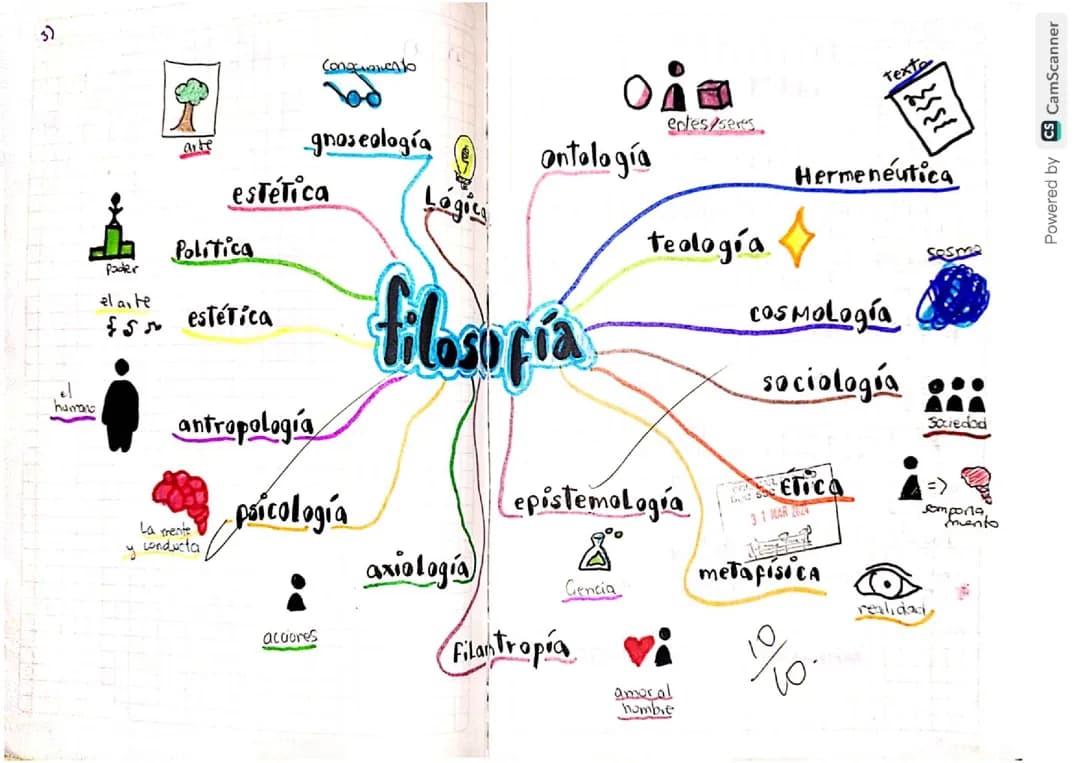 3)
Conocimiento
gnoseología
arte
estética
Lógica
Política
Poder
el arte
estética
el
humano
antropología
psicología
La mente
y conducta
axiología
acciores
filantropía
amor al
hombre
filosofía
entes/seres
ontología
Texto
Hermenéutica
teología
cosmo
cosmología
sociología
sociedad
Ética
=>
comporta
miento
31 MAR 2024
epistemología
Ciencia
metafísica
realidad
10/10.
Powered by CS CamScanner